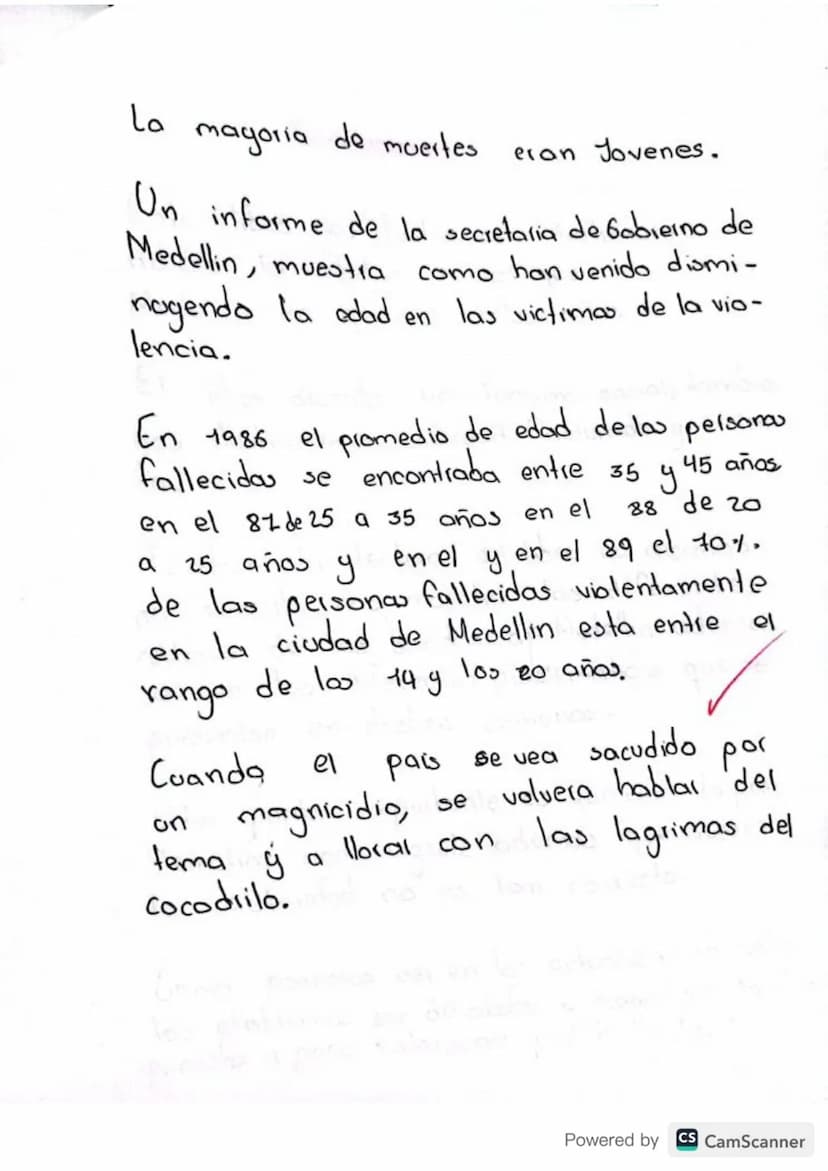 La mayoria de muertes eran Jovenes.
Un informe de la secretaria de Gobierno de
Medellin, muestra como han venido dismi-
nuyendo la edad en las victimas de la vio-
lencia.
En 1986 el promedio de edad de las personas
fallecidas se encontraba entre 35 y 45 años
en el 87 de 25 a 35 años en el 88 de 20
a 25 años y en el y en el 89 el 70%.
de las personas fallecidas violentamente
en la ciudad de Medellin esta entre el
rango de los 14 y los 20 años.
Cuando el pais se vea sacudido por
un magnicidio, se volvera hablar del
tema y a llorar con las lagrimas del
cocodrilo.
Powered by CS CamScanner